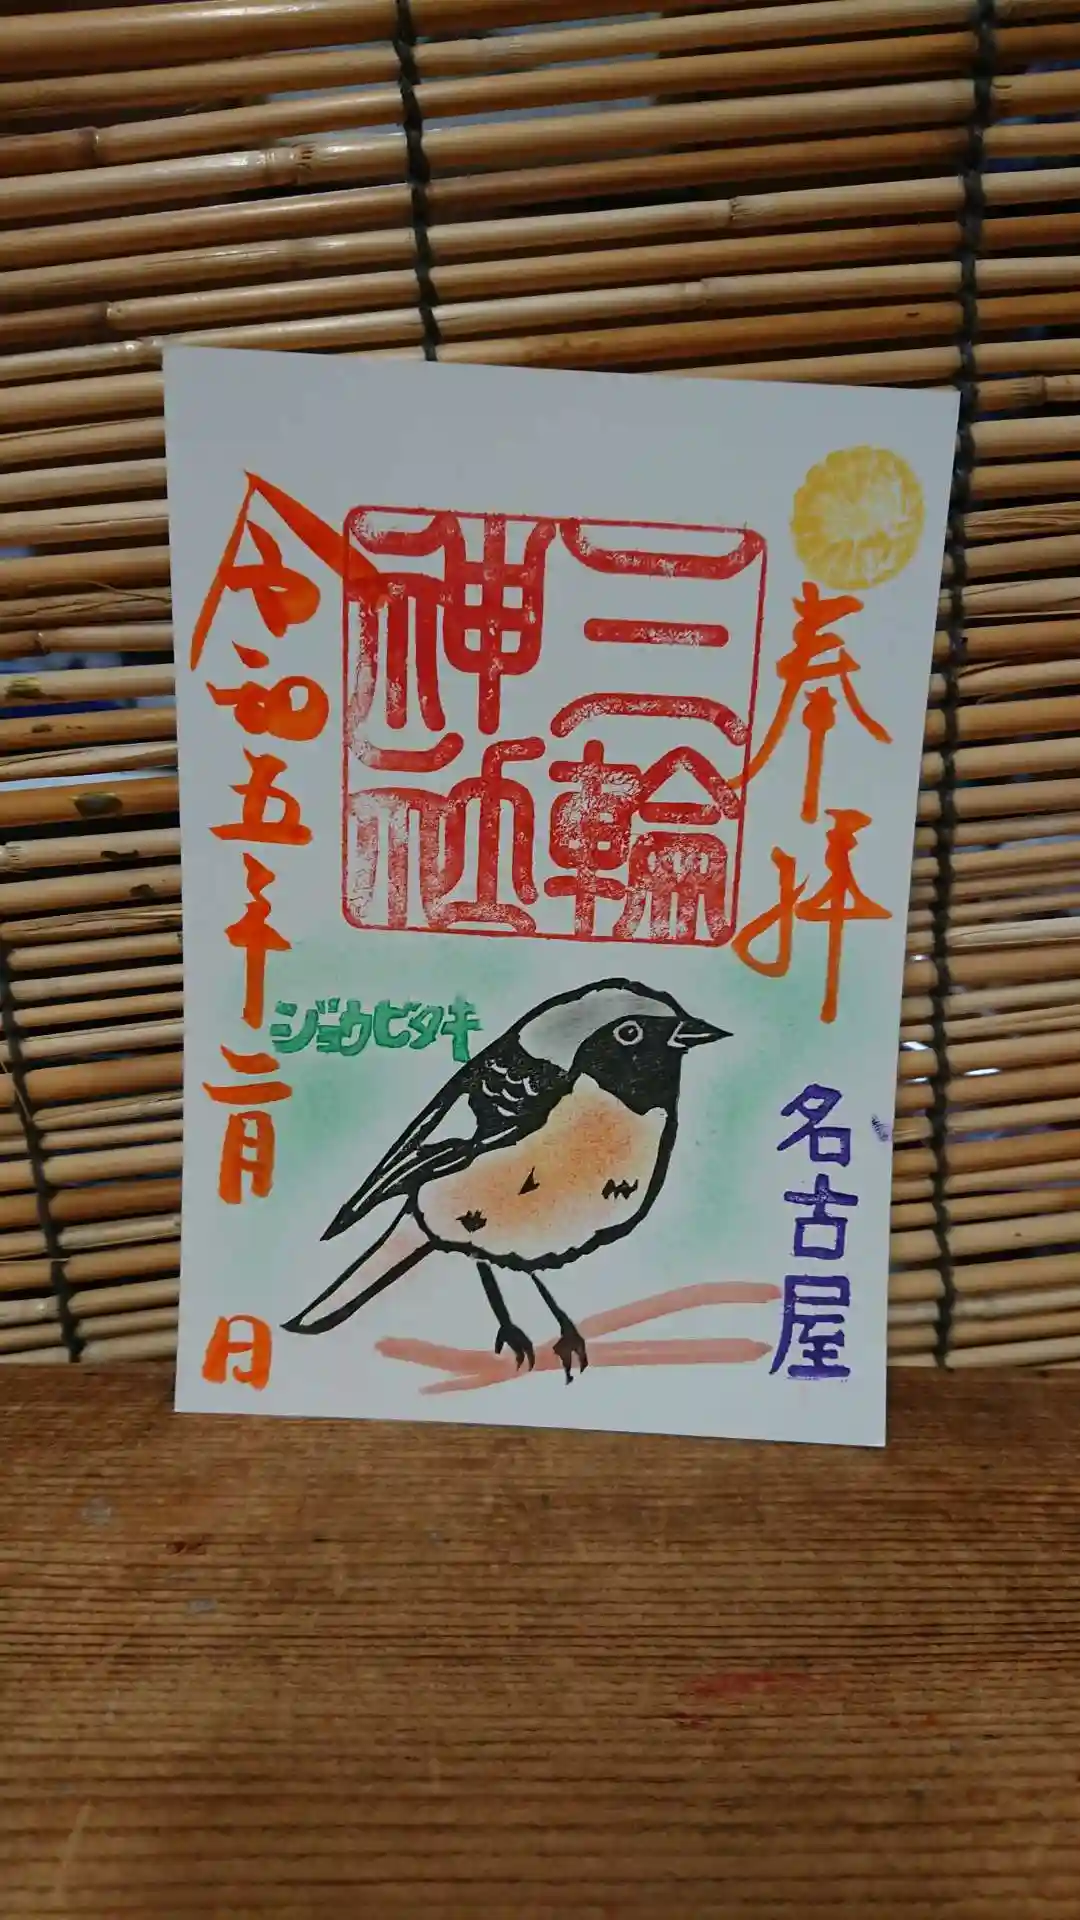 奉拝
名古屋
三輪
神社
ジョウビタキ
令和五年二月 日